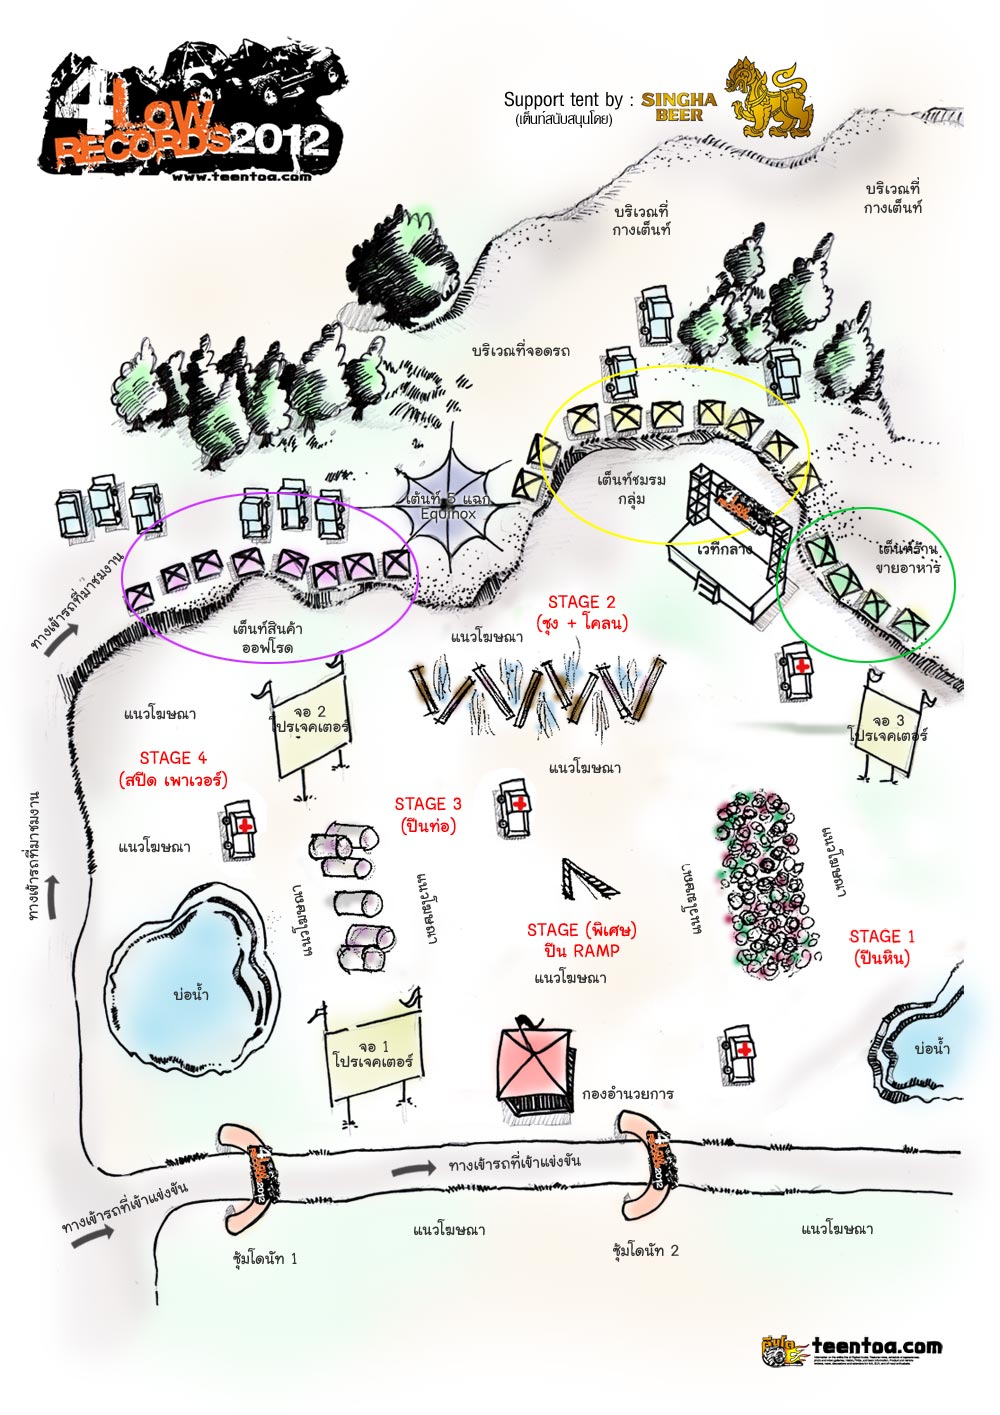 4Low
RECORDS 2012
www.teentoa.com
Support tent by :
(เต็นท์สนับสนุนโดย)
SINGHA
BEER
บริเวณที่
กางเต็นท์
บริเวณที่
กางเต็นท์
บริเวณที่จอดรถ
เต็นท์ชมรม
กลุ่ม
เต้นท์ 5 แฉก
Equinox
เวทีกลาง
เต็นท์ร้าน
ขายอาหาร
ทางเข้ารถที่มาชมงาน
เต็นท์สินค้า
ออฟโรด
STAGE 2
(ซุง + โคลน)
แนวโฆษณา
แนวโฆษณา
จอ 2
โปรเจคเตอร์
จอ 3
โปรเจคเตอร์
STAGE 4
(สปีด เพาเวอร์)
แนวโฆษณา
STAGE 3
(ปีนท่อ)
ทางเข้ารถที่มาชมงาน
แนวโฆษณา
แนวโฆษณา
แนวโฆษณา
แนวโฆษณา
แนวโฆษณา
STAGE (พิเศษ)
ปีน RAMP
แนวโฆษณา
STAGE 1
(ปีนหิน)
บ่อน้ำ
จอ 1
โปรเจคเตอร์
บ่อน้ำ
กองอำนวยการ
4Low
2012
4Low
2012
ทางเข้ารถที่เข้าแข่งขัน
ทางเข้ารถที่เข้าแข่งขัน
แนวโฆษณา
แนวโฆษณา
ซุ้มโดนัท 1
ซุ้มโดนัท 2
teentoa.com